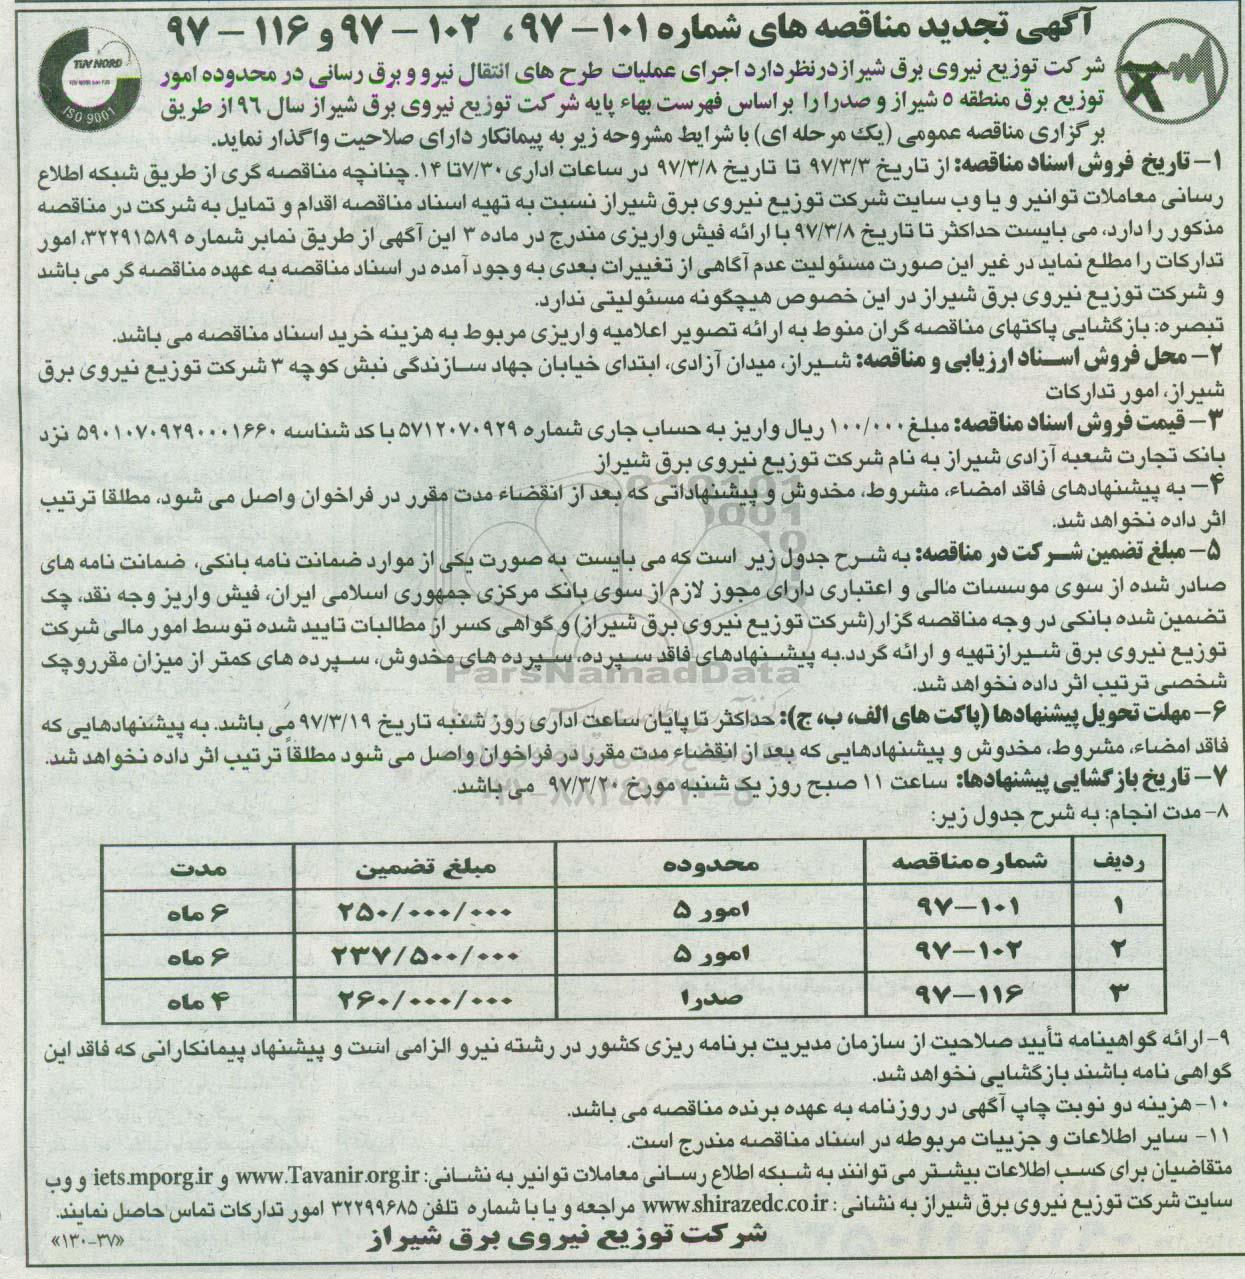 آگهی تجدید مناقصه های شماره ۱۰۱- ۹۷، ۱۰۲ - ۹۷ و ۱۱۶ - ۹۷
TÜV NORD
ISO 9001
شرکت توزیع نیروی برق شیراز درنظر دارد اجرای عملیات طرح های انتقال نیرو و برق رسانی در محدوده امور
توزیع برق منطقه ۵ شیراز و صدرا را براساس فهرست بهاء پایه شرکت توزیع نیروی برق شیراز سال ۹۶ از طریق
برگزاری مناقصه عمومی (یک مرحله ای) با شرایط مشروحه زیر به پیمانکار دارای صلاحیت واگذار نماید.
۱- تاریخ فروش اسناد مناقصه: از تاریخ ۹۷/۳/۳ تا تاریخ ۹۷/۳/۸ در ساعات اداری ۷/۳۰ تا ۱۴. چنانچه مناقصه گری از طریق شبکه اطلاع
رسانی معاملات توانیر و یا وب سایت شرکت توزیع نیروی برق شیراز نسبت به تهیه اسناد مناقصه اقدام و تمایل به شرکت در مناقصه
مذکور را دارد، می بایست حداکثر تا تاریخ ۹۷/۳/۸ با ارائه فیش واریزی مندرج در ماده ۳ این آگهی از طریق نمابر شماره ۳۲۲۹۱۵۸۹، امور
تدارکات را مطلع نماید در غیر این صورت مسئولیت عدم آگاهی از تغییرات بعدی به وجود آمده در اسناد مناقصه به عهده مناقصه گر می باشد
و شرکت توزیع نیروی برق شیراز در این خصوص هیچگونه مسئولیتی ندارد.
تبصره: بازگشایی پاکتهای مناقصه گران منوط به ارائه تصویر اعلامیه واریزی مربوط به هزینه خرید اسناد مناقصه می باشد.
۲- محل فروش اسناد ارزیابی و مناقصه: شیراز، میدان آزادی، ابتدای خیابان جهاد سازندگی نبش کوچه ۳ شرکت توزیع نیروی برق
شیراز، امور تدارکات
۳- قیمت فروش اسناد مناقصه: مبلغ ۱۰۰/۰۰۰ ریال واریز به حساب جاری شماره ۵۷۱۲۰۷۰۹۲۹ با کد شناسه ۵۹۰۱۰۷۰۹۲۹۰۰۰۱۶۶۰ نزد
بانک تجارت شعبه آزادی شیراز به نام شرکت توزیع نیروی برق شیراز
۴- به پیشنهادهای فاقد امضاء، مشروط، مخدوش و پیشنهاداتی که بعد از انقضاء مدت مقرر در فراخوان واصل می شود، مطلقا ترتیب
اثر داده نخواهد شد.
۵- مبلغ تضمین شرکت در مناقصه: به شرح جدول زیر است که می بایست به صورت یکی از موارد ضمانت نامه بانکی، ضمانت نامه های
صادر شده از سوی موسسات مالی و اعتباری دارای مجوز لازم از سوی بانک مرکزی جمهوری اسلامی ایران، فیش واریز وجه نقد، چک
تضمین شده بانکی در وجه مناقصه گزار(شرکت توزیع نیروی برق شیراز) و گواهی کسر از مطالبات تایید شده توسط امور مالی شرکت
توزیع نیروی برق شیراز تهیه و ارائه گردد.به پیشنهادهای فاقد سپرده، سپرده های مخدوش، سپرده های کمتر از میزان مقرر و چک
شخصی ترتیب اثر داده نخواهد شد.
ParsNamadData
۶- مهلت تحویل پیشنهادها (پاکت های الف، ب، ج): حداکثر تا پایان ساعت اداری روز شنبه تاریخ ۹۷/۳/۱۹ می باشد. به پیشنهادهایی که
فاقد امضاء، مشروط، مخدوش و پیشنهادهایی که بعد از انقضاء مدت مقرر در فراخوان واصل می شود مطلقاً ترتیب اثر داده نخواهد شد.
۷- تاریخ بازگشایی پیشنهادها: ساعت ۱۱ صبح روز یک شنبه مورخ ۹۷/۳/۲۰ می باشد.
۸- مدت انجام: به شرح جدول زیر:
ردیف شماره مناقصه محدوده مبلغ تضمین مدت
۱ ۱۰۱-۹۷ امور ۵ ۲۵۰/۰۰۰/۰۰۰ ۶ ماه
۲ ۱۰۲-۹۷ امور ۵ ۲۳۷/۵۰۰/۰۰۰ ۶ ماه
۳ ۱۱۶-۹۷ صدرا ۲۶۰/۰۰۰/۰۰۰ ۴ ماه
۹- ارائه گواهینامه تأیید صلاحیت از سازمان مدیریت برنامه ریزی کشور در رشته نیرو الزامی است و پیشنهاد پیمانکارانی که فاقد این
گواهی نامه باشند بازگشایی نخواهد شد.
۱۰- هزینه دو نوبت چاپ آگهی در روزنامه به عهده برنده مناقصه می باشد.
۱۱- سایر اطلاعات و جزییات مربوطه در اسناد مناقصه مندرج است.
متقاضیان برای کسب اطلاعات بیشتر می توانند به شبکه اطلاع رسانی معاملات توانیر به نشانی: www.Tavanir.org.ir و iets.mporg.ir و وب
سایت شرکت توزیع نیروی برق شیراز به نشانی : www.shirazedc.co.ir مراجعه و یا با شماره تلفن ۳۲۲۹۹۶۸۵ امور تدارکات تماس حاصل نمایند.
شرکت توزیع نیروی برق شیراز
«۱۳۰-۳۷»